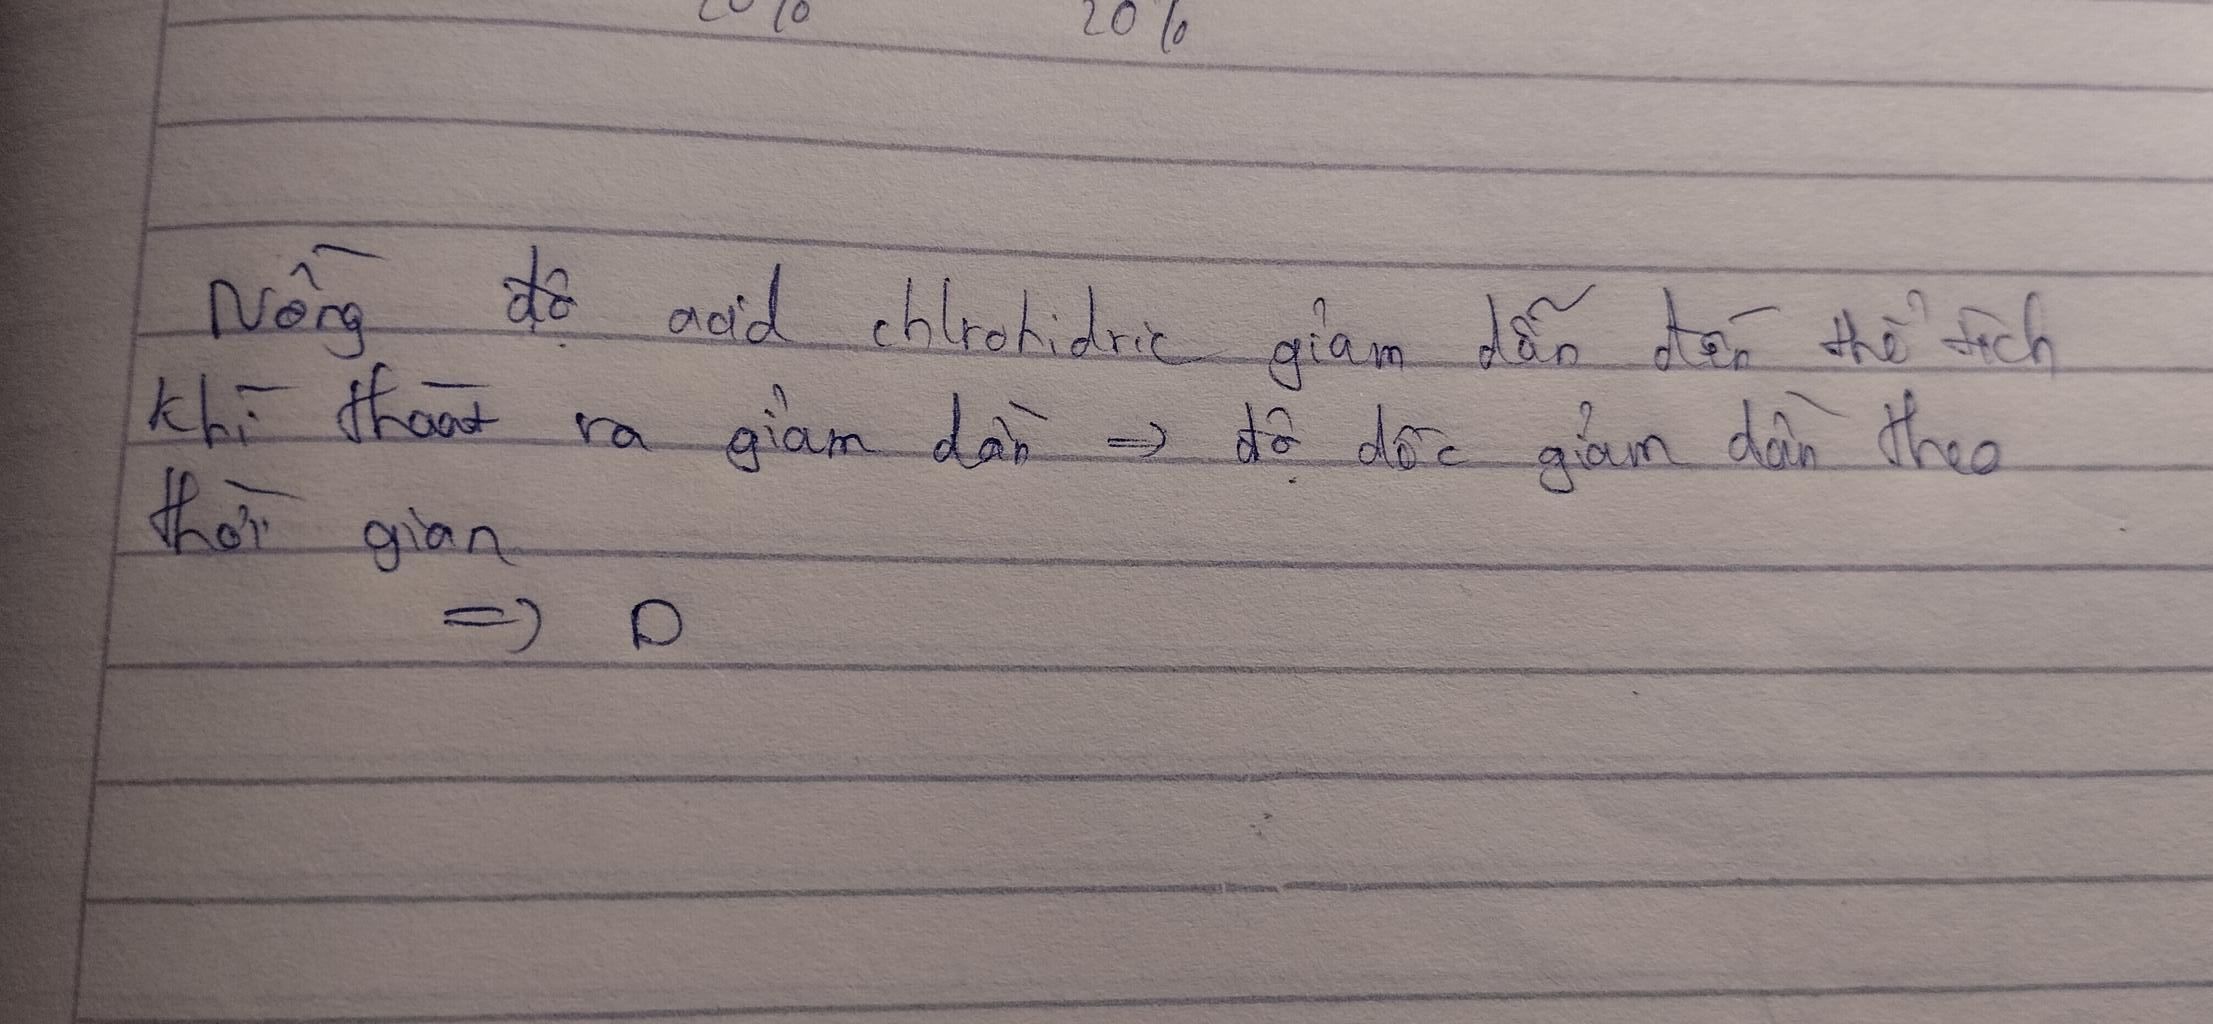 20%
Nồng độ acid chlrohidric giảm dẫn đến thể tích
khí thoát ra giảm dần => độ dốc giảm dần theo
thời gian
=> D